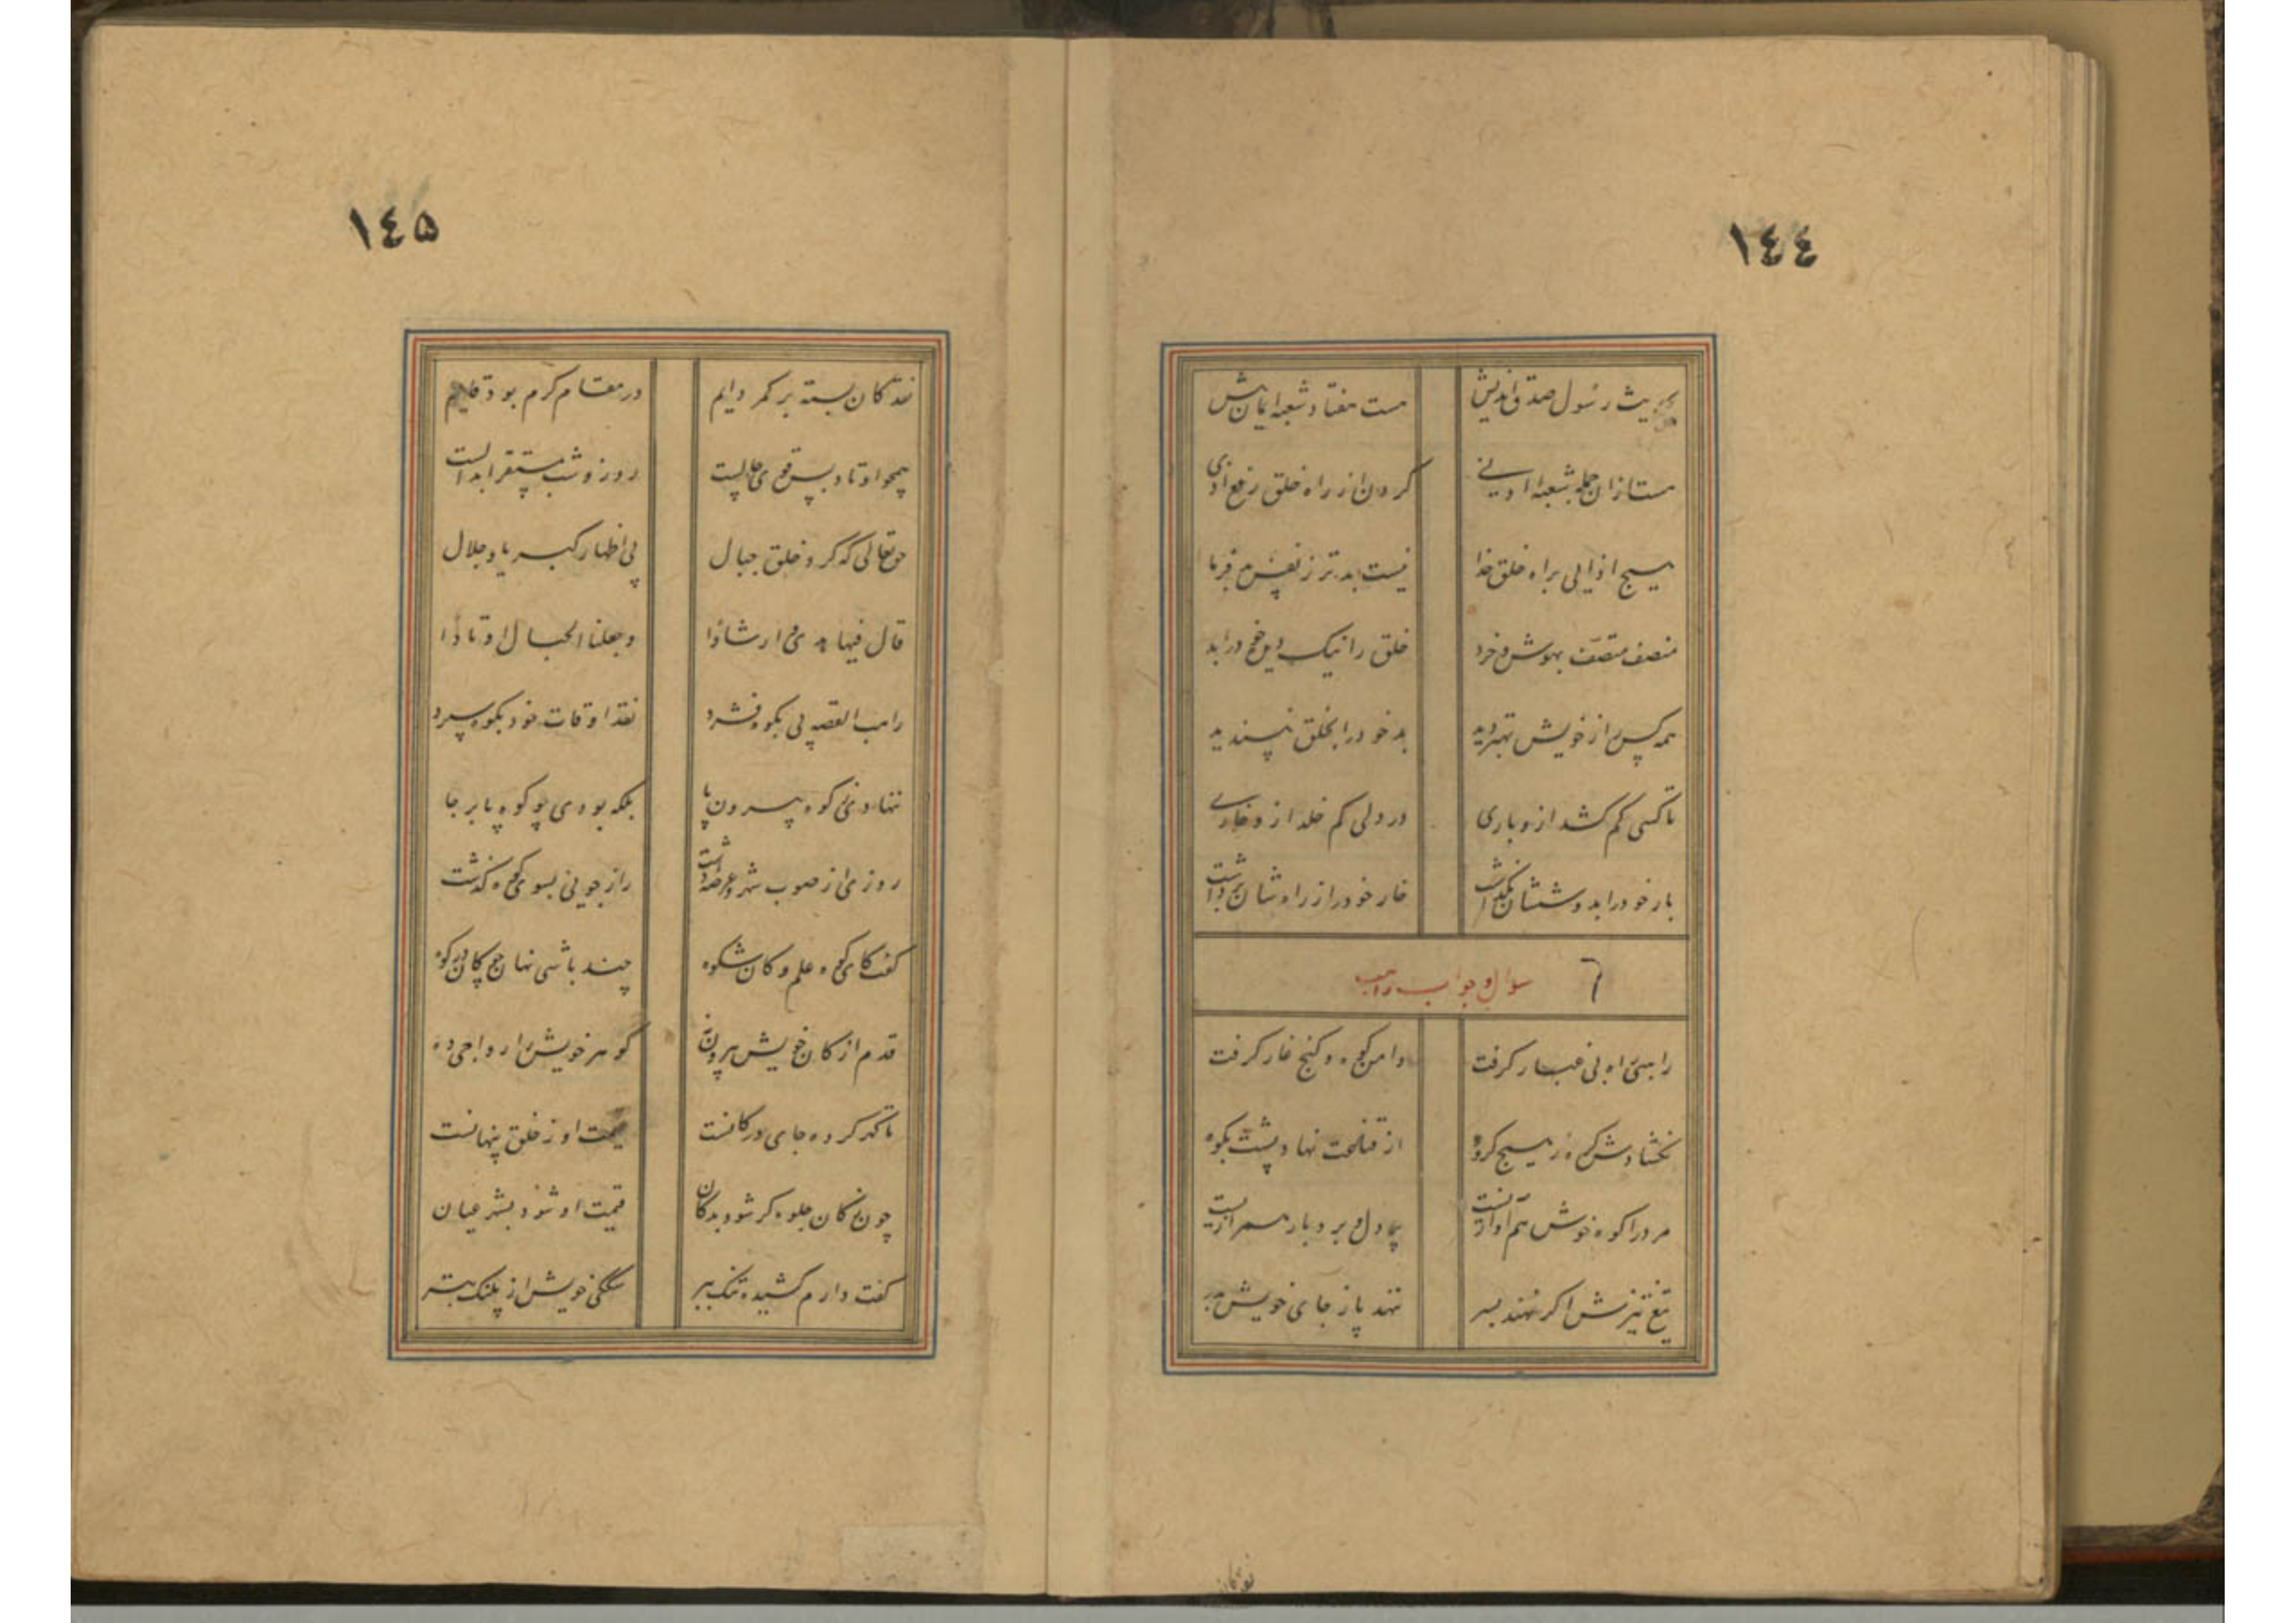 ١٤٤
بحدیث رسول صدق اندیش
هست هفتاد شعبه ایمانش
هست ازان جمله شعبهٔ ادنی
کردن از راه خلق رفع اذی
هیچ اذیی براه خلق خدا
نیست بدتر ز نفس بدفرما
منصف متصف بهوش و خرد
خلق را نیک دید و خود را بد
همه کس را ز خویش بهتر دید
بد خود را بخلق نپسندید
تا کسی کم کشد ازو باری
در دلی کم خلد ازو خاری
بار خود را بدوششان نگذاشت
خار خود را ز راهشان برداشت
سؤال و جواب راهب
راهبی راه بی غبار گرفت
دامن کوه و کنج غار گرفت
نگشادش گره ز هیچ گروه
از قناعت نهاد پشت بکوه
مرد را کوه خوش هم آوازیست
پردل و بردبار همرازیست
تیغ تیزش اگر نهند بسر
ننهد پا ز جای خویش بدر
١٤٥
نقد کان بسته بر کمر دایم
در مقام کرم بود قایم
همچو اوتاد پس قوی حالیست
روز و شب مستقر ابدالیست
حق تعالی که کرد خلق جبال
پی اظهار کبریا و جلال
قال فیها هدی و ارشادا
وجعلنا الجبال اوتادا
راهب القصه پی بکوه فشرد
نقد اوقات خود بکوه سپرد
ننهادی ز کوه بیرون پا
بلکه بودی چو کوه پا بر جا
روزی از صوب شهر و عرصهٔ دشت
رازجویی بسوی کوه گذشت
گفت کای کوه علم و کان شکوه
چند باشی نهان چو کان در کوه
قدم از کان خویش بیرون نه
گوهر خویش را رواجی ده
تا گهر کرده جای در کانست
قیمت او ز خلق پنهانست
چون ز کان جلوه گر شود بدکان
قیمت او شود بشهر عیان
گفت دارم کشیده تنگ ببر
سگی خویش از پلنگ بتر